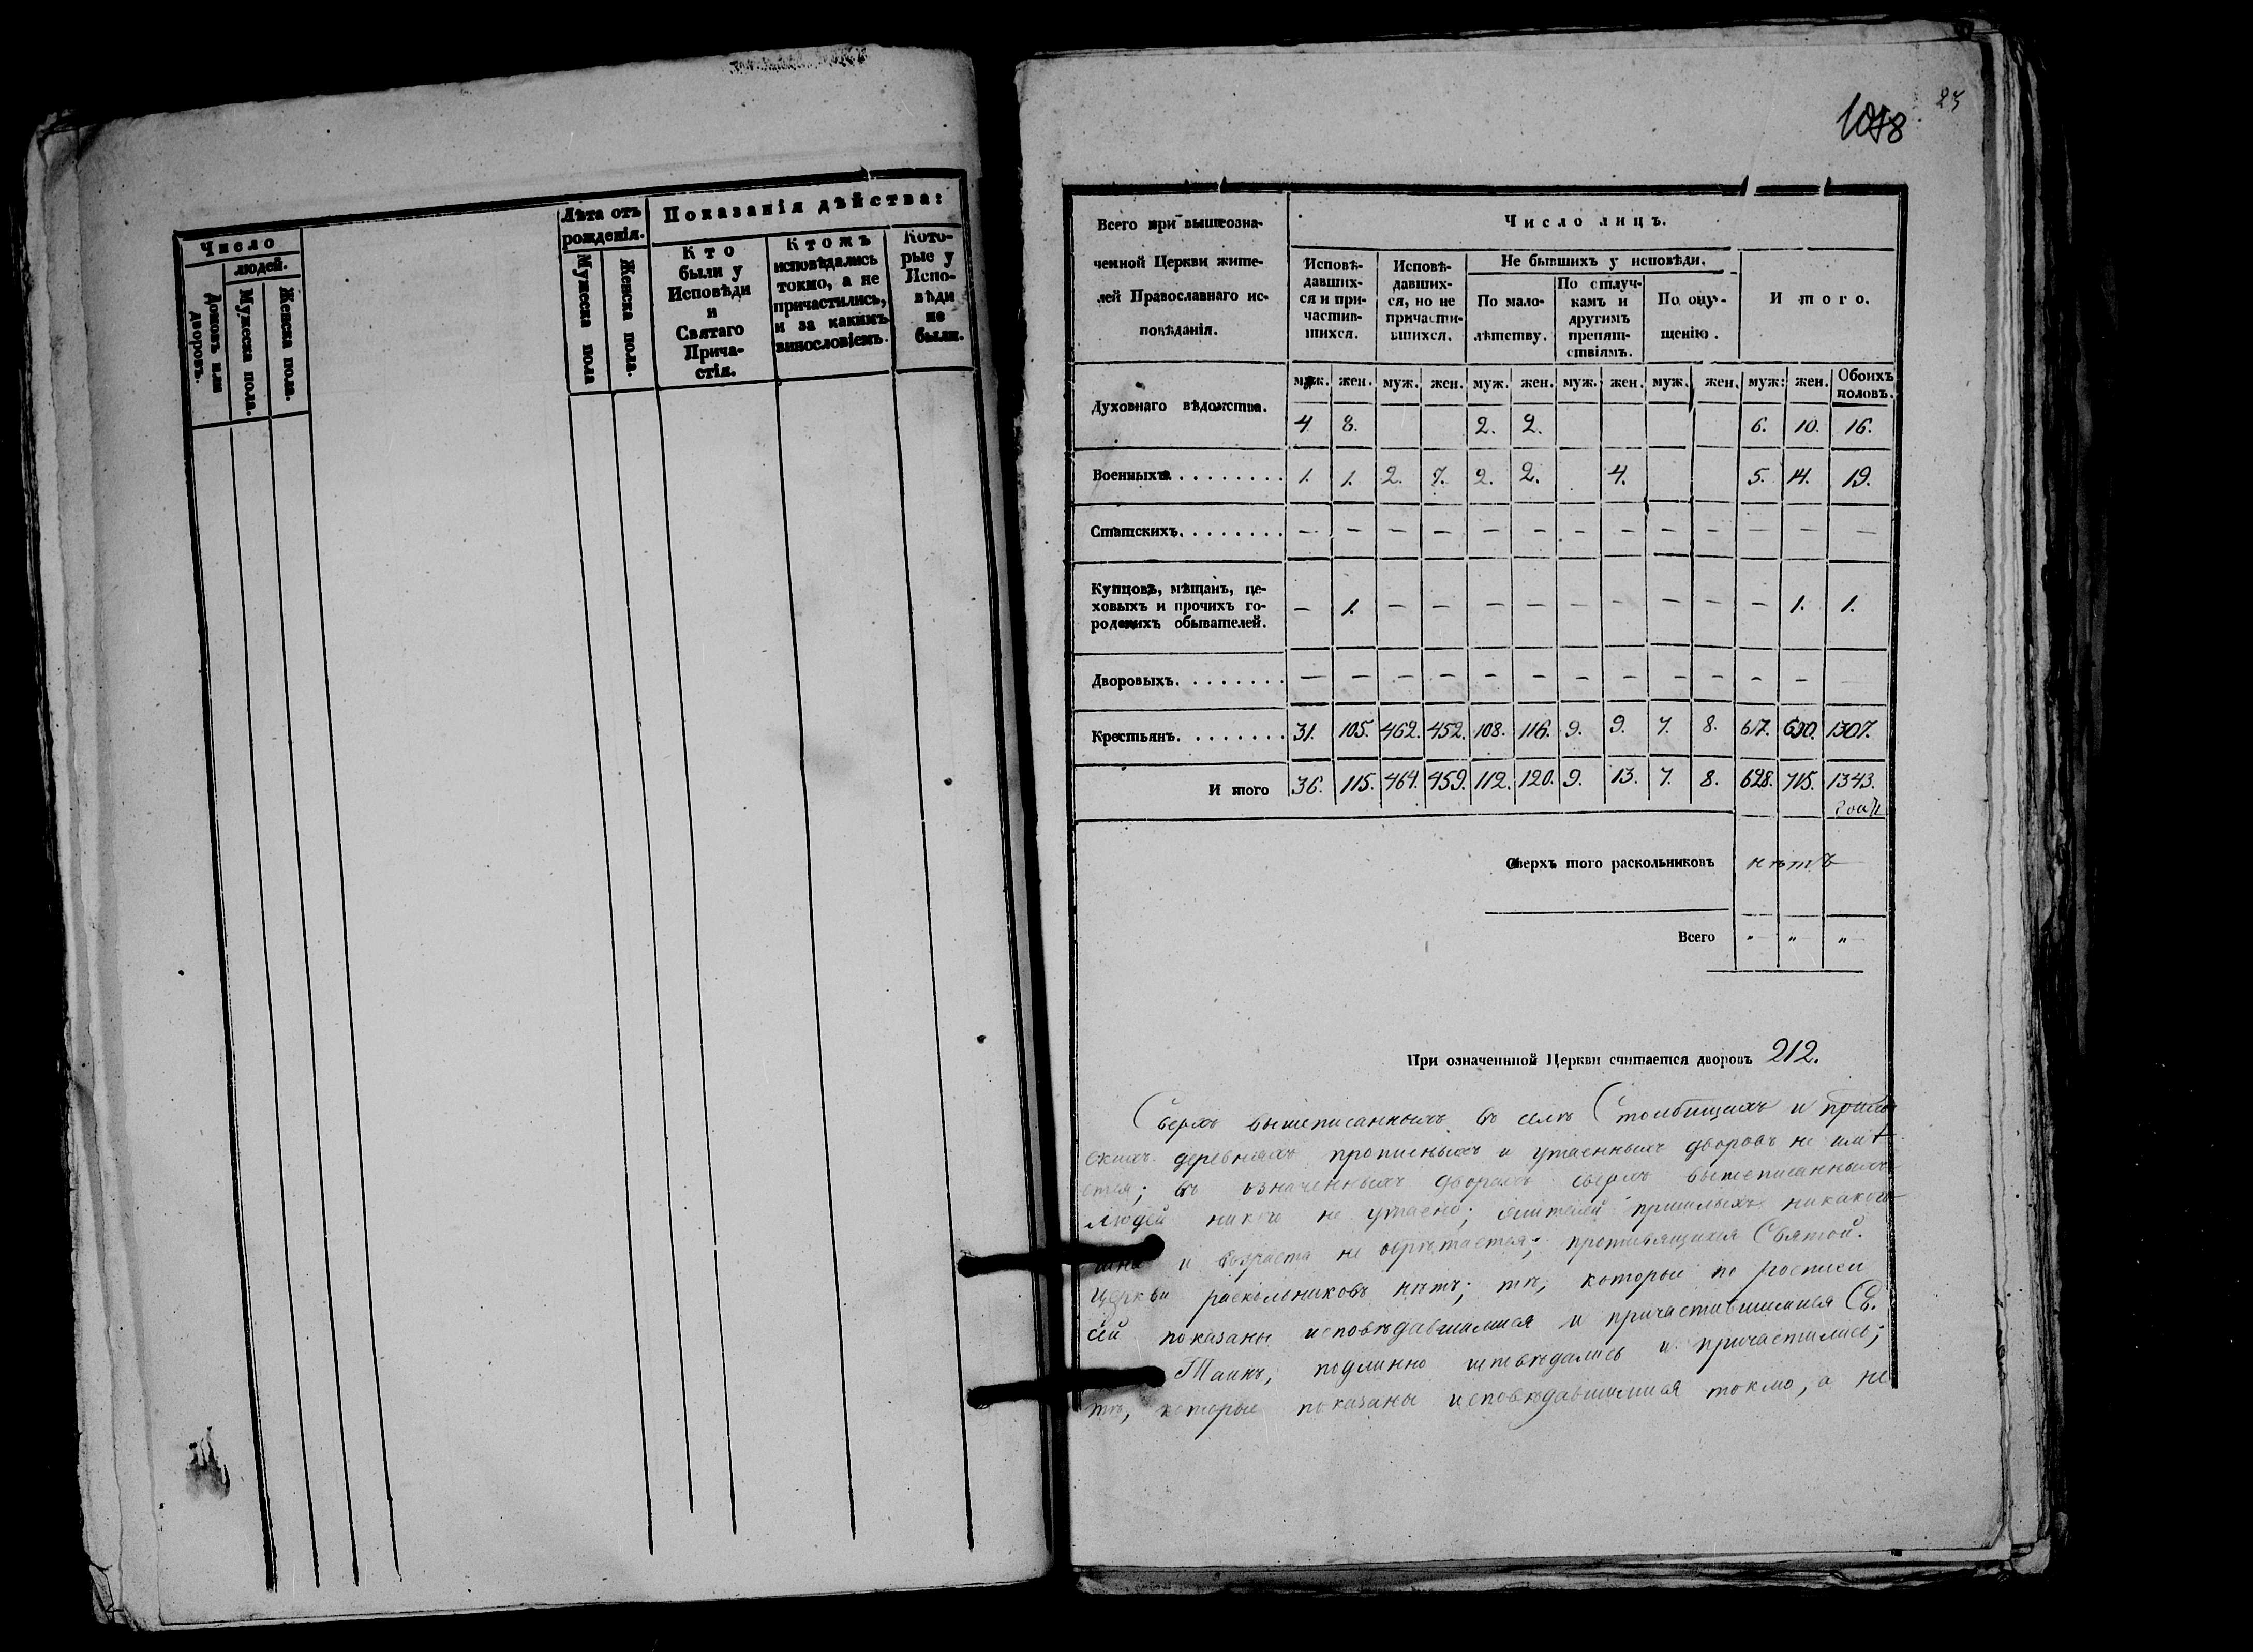 Число
людей.
Домовъ или дворовъ.
Мужеска пола.
Женска пола.
Лѣта отъ
рожденія.
Мужеска пола
Женска пола.
Показанія дѣйства:
Кто
были у
Исповѣди
и
Святаго
Прича-
стія.
Ктожъ
исповѣдались
токмо, а не
причастились,
и за какимъ
винословіемъ.
Кото-
рые у
Испо-
вѣди
не
были.
23
Всего при вышеозна-
ченной Церкви жите-
лей Православнаго ис-
повѣданія.
Число лицъ.
Исповѣ-
давших-
ся и при-
частив-
шихся.
Исповѣ-
давших-
ся, но не
причасти-
вшихся.
Не бывшихъ у исповѣди.
По мало-
лѣтству.
По отлуч-
камъ и
другимъ
препят-
ствіямъ.
По опу-
щенію.
Итого.
муж. жен. муж. жен. муж. жен. муж. жен. муж. жен. муж: жен. Обоихъ половъ.
Духовнаго вѣдомства. 4 8. 2. 2. 6. 10. 16.
Военныхъ. . . . . . . . . 1. 1. 2. 7. 2. 2. 4. 5. 14. 19.
Статскихъ. . . . . . . . — — — — — — — — — — — — —
Купцовъ, мѣщанъ, це-
ховыхъ и прочихъ го-
родскихъ обывателей. — 1. — — — — — — — — — 1. 1.
Дворовыхъ. . . . . . . . — — — — — — — — — — — —
Крестьянъ. . . . . . . . 31. 105. 462. 452. 108. 116. 9. 9. 7. 8. 617. 690. 1307.
Итого 36. 115. 464. 459. 112. 120. 9. 13. 7. 8. 628. 715. 1343.
Сверхъ того раскольниковъ нѣтъ
Всего " " "
При означенной Церкви считается дворовъ 212.
Сверхъ вышеписанныхъ въ селѣ Столбищахъ и приход
скихъ деревняхъ прописныхъ и утаенныхъ дворовъ не имѣ
ется; въ означенныхъ дворахъ сверхъ вышеписанныхъ
людей никого не утаено; жителей пришлыхъ никакого
и возраста не обрѣтается; противящихся Святой
Церкви раскольниковъ нѣтъ; тѣ, которые по росписи
сей показаны исповѣдавшимися и причастившимися Св.
Таинъ, подлинно исповѣдались и причастились;
тѣ, которые показаны исповѣдавшимися токмо, а не